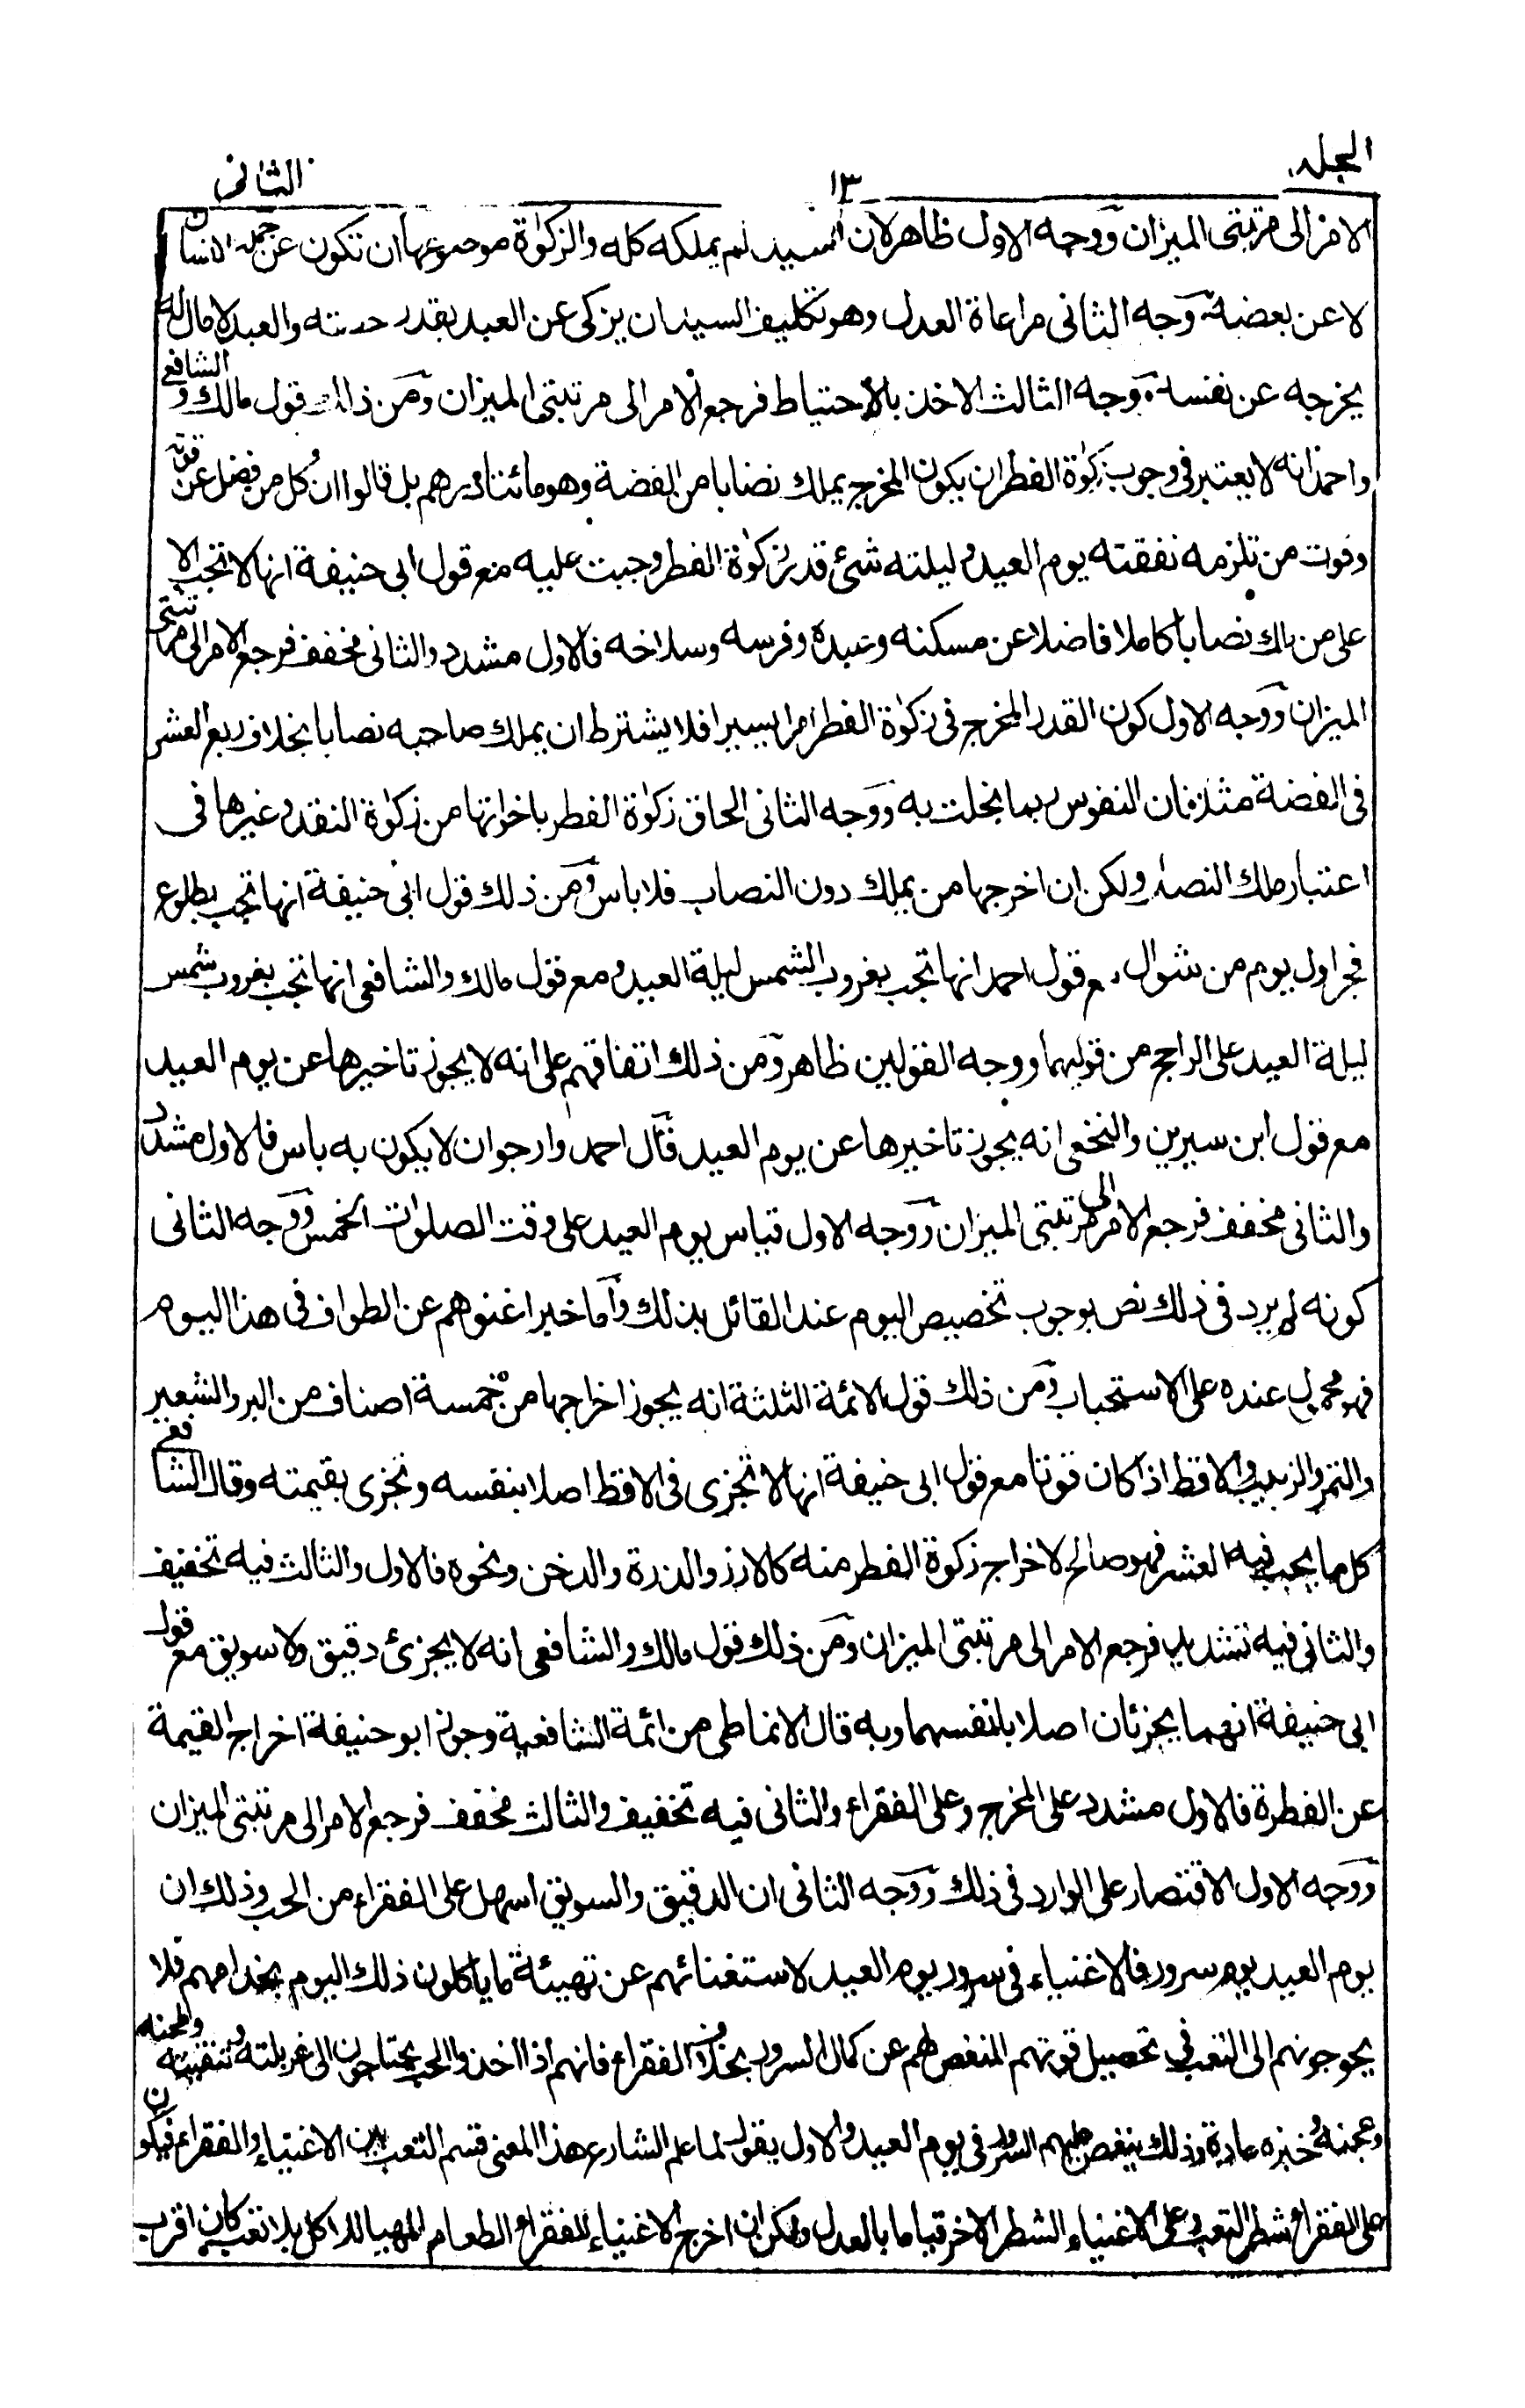 الجلد ١٣ الثانى
الامر الى مرتبتى الميزان ووجه الاول ظاهر لان السيد لم يملكه كله والزكوٰة موضوعها ان تكون عن جملة الانسان
لا عن بعضه ووجه الثانى مراعاة العدل وهو تكليف السيد ان يزكى عن العبد بقدر حصته والعبد لا مال له
يخرجه عن نفسه ووجه الثالث الاخذ بالاحتياط فرجع الامر الى مرتبتى الميزان ومن ذالك قول مالك والشافعى
واحمد انه لا يعتبر فى وجوب زكوٰة الفطر ان يكون المخرج يملك نصابا من الفضة وهو مائتا درهم بل قالوا ان كل من فضل عن قوته
وقوت من تلزمه نفقته يوم العيد وليلته شئ قدر زكوٰة الفطر وجبت عليه مع قول ابى حنيفة انها لا تجب الا
على من ملك نصابا كاملا فاضلا عن مسكنه وعبده وفرسه وسلاحه فالاول مشدد والثانى مخفف فرجع الامر الى مرتبتى
الميزان ووجه الاول كون القدر المخرج فى زكوٰة الفطر امرا يسيرا فلا يشترط ان يملك صاحبه نصابا بخلاف ربع العشر
فى الفضة مثلا فان النفوس ربما بخلت به ووجه الثانى الحاق زكوٰة الفطر باخواتها من زكوٰة النقد وغيرها فى
اعتبار ملك النصاب ولكن ان اخرجها من يملك دون النصاب فلا باس ومن ذلك قول ابى حنيفة انها تجب بطلوع
فجر اول يوم من شوال مع قول احمد انها تجب بغروب الشمس ليلة العيد ومع قول مالك والشافعى انها تجب بغروب شمس
ليلة العيد على الراجح من قوليهما ووجه القولين ظاهر ومن ذلك اتفاقهم على انه لا يجوز تاخيرها عن يوم العيد
مع قول ابن سيرين والنخعى انه يجوز تاخيرها عن يوم العيد قال احمد وارجو ان لا يكون به باس فالاول مشدد
والثانى مخفف فرجع الامر الى مرتبتى الميزان ووجه الاول قياس يوم العيد على وقت الصلوات الخمس ووجه الثانى
كونه لم يرد فى ذلك نص بوجوب تخصيص اليوم عند القائل بذلك واما خبر اغنوهم عن الطواف فى هذا اليوم
فهو محمول عنده على الاستحباب ومن ذلك قول الائمة الثلثة انه يجوز اخراجها من خمسة اصناف من البر والشعير
والتمر والزبيب والاقط اذا كان قوتا مع قول ابى حنيفة انها لا تجزى فى الاقط اصلا بنفسه وتجزى بقيمته وقال الشافعى
كل ما يجب فيه العشر فهو صالح لاخراج زكوة الفطر منه كالارز والذرة والدخن ونحوه فالاول والثالث فيه تخفيف
والثانى فيه تشديد فرجع الامر الى مرتبتى الميزان ومن ذلك قول مالك والشافعى انه لا يجزئ دقيق ولا سويق مع قول
ابى حنيفة انهما يجزئان اصلا بانفسهما وبه قال الانماطى من ائمة الشافعية وجوز ابو حنيفة اخراج القيمة
عن الفطرة فالاول مشدد على المخرج وعلى الفقراء والثانى فيه تخفيف والثالث مخفف فرجع الامر الى مرتبتى الميزان
ووجه الاول الاقتصار على الوارد فى ذلك ووجه الثانى ان الدقيق والسويق اسهل على الفقراء من الحب وذلك ان
يوم العيد يوم سرور فالاغنياء فى سرور يوم العيد لاستغنائهم عن تهيئة ما ياكلون ذلك اليوم بخدامهم فلا
يحوجونهم الى التعب فى تحصيل قوتهم المنغص لهم عن كمال السرور بخلاف الفقراء فانهم اذا اخذوا الحب يحتاجون الى غربلته وتنقيته وطحنه
وعجنه وخبزه عادة وذلك ينغص عليهم السرور فى يوم العيد والاول يقول لما علم الشارع هذا المعنى قسم التعب بين الاغنياء والفقراء فيكون
على الفقراء شطر التعب وعلى الاغنياء الشطر الاخر قياما بالعدل ولكن ان اخرج الاغنياء للفقراء الطعام المهيا للاكل بلا تعب كان اقرب